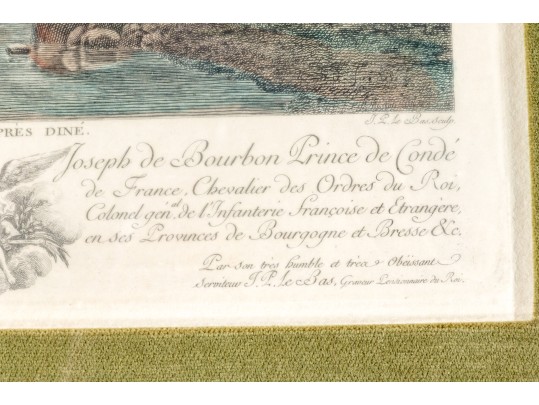 J. P. le Bas Sculp.
PRÈS DINÉ.
Joseph de Bourbon Prince de Condé
de France, Chevalier des Ordres du Roi,
Colonel gén.al de l'Infanterie françoise et Etrangère,
en ses Provinces de Bourgogne et Bresse &c.
Par son très humble et très Obéissant
Serviteur J. P. le Bas, Graveur Pensionnaire du Roi.